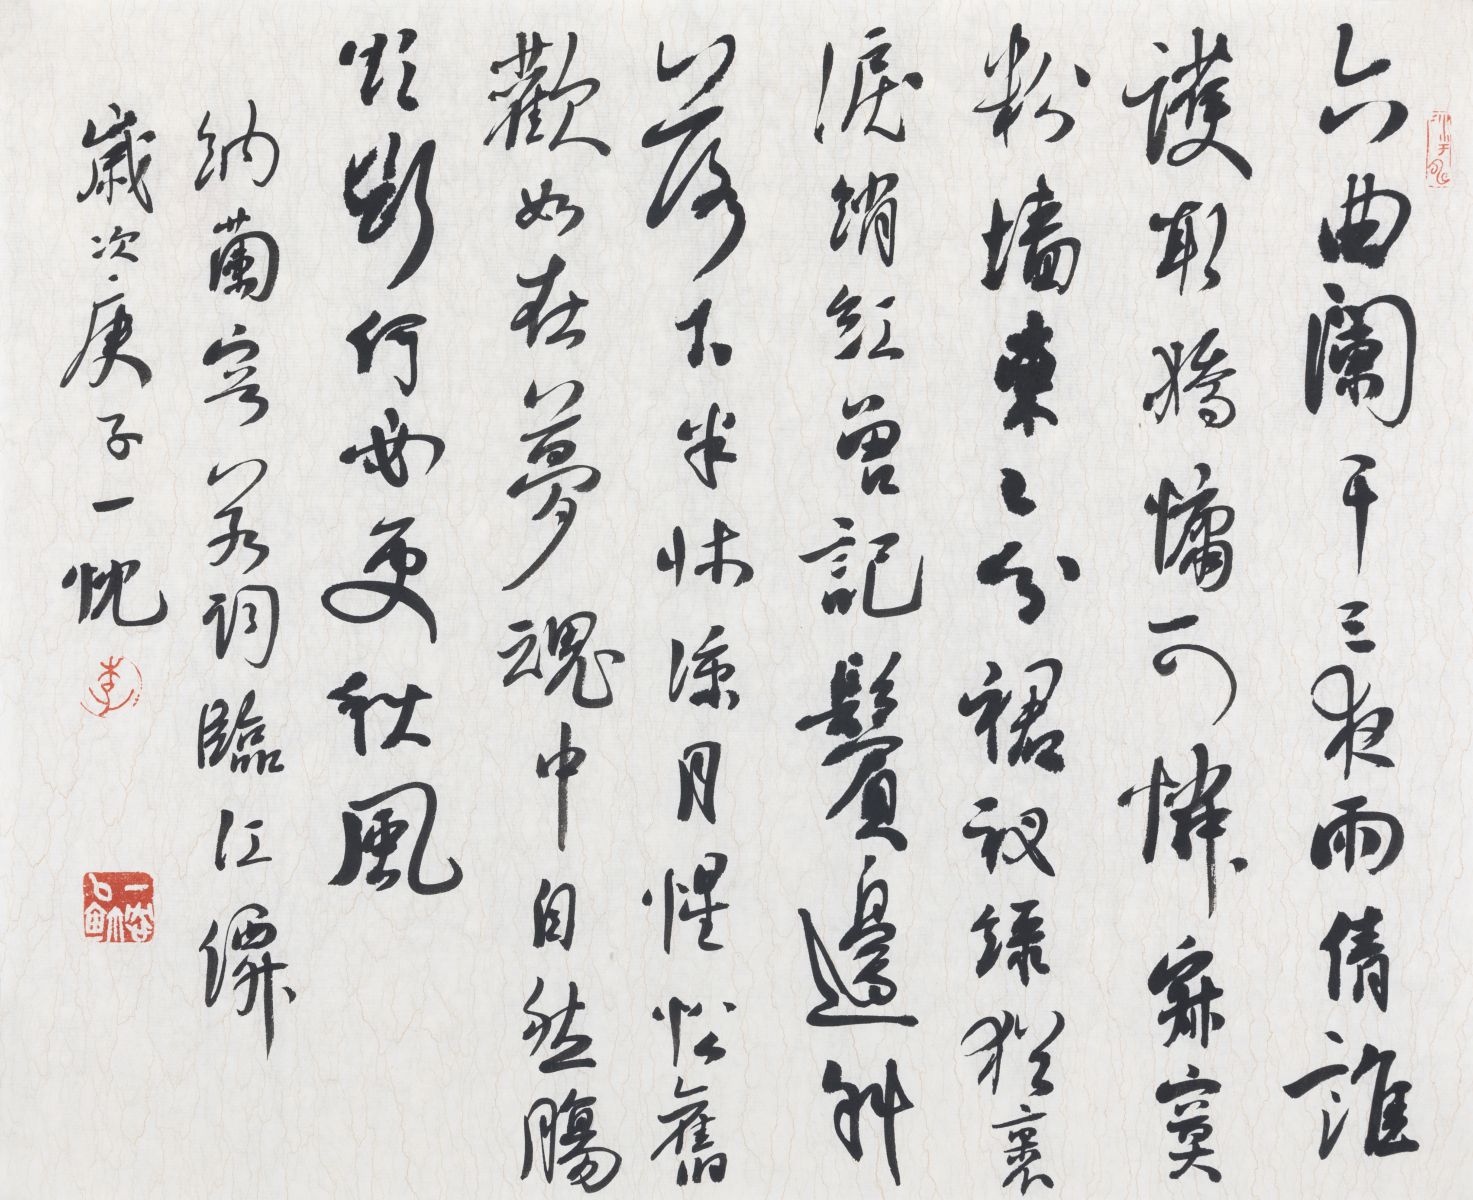 六曲闌干三夜雨倩誰
護取嬌慵可憐寂寞
粉墻東已分裙衩綠猶裹
淚綃紅曾記鬢邊斜
落下半牀涼月惺忪舊
歡如在夢魂中自然腸
欲斷何必更秋風
納蘭容若詞臨江僊
歲次庚子一忱
李